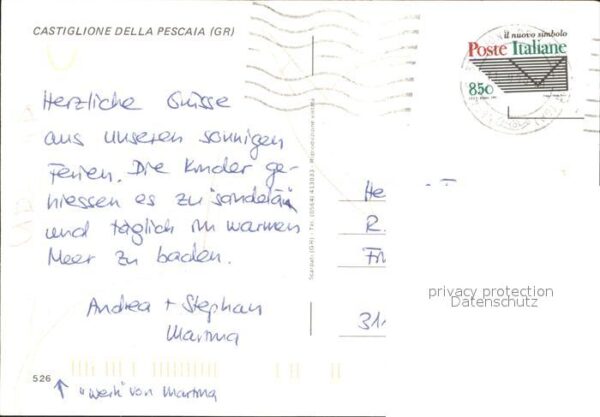 CASTIGLIONE DELLA PESCAIA (GR)
il nuovo simbolo
Poste Italiane
850
Herzliche Grüsse
aus unseren sonnigen
Ferien. Die Kinder ge-
niessen es zu "sändelä"
und täglich im warmen
Meer zu baden.
Andrea + Stephan
Martina
526
"werk" von Martina
Scarpati (GR) - Tel. (0564) 413033 - Riproduzione vietata
He
R.
31
privacy protection
Datenschutz